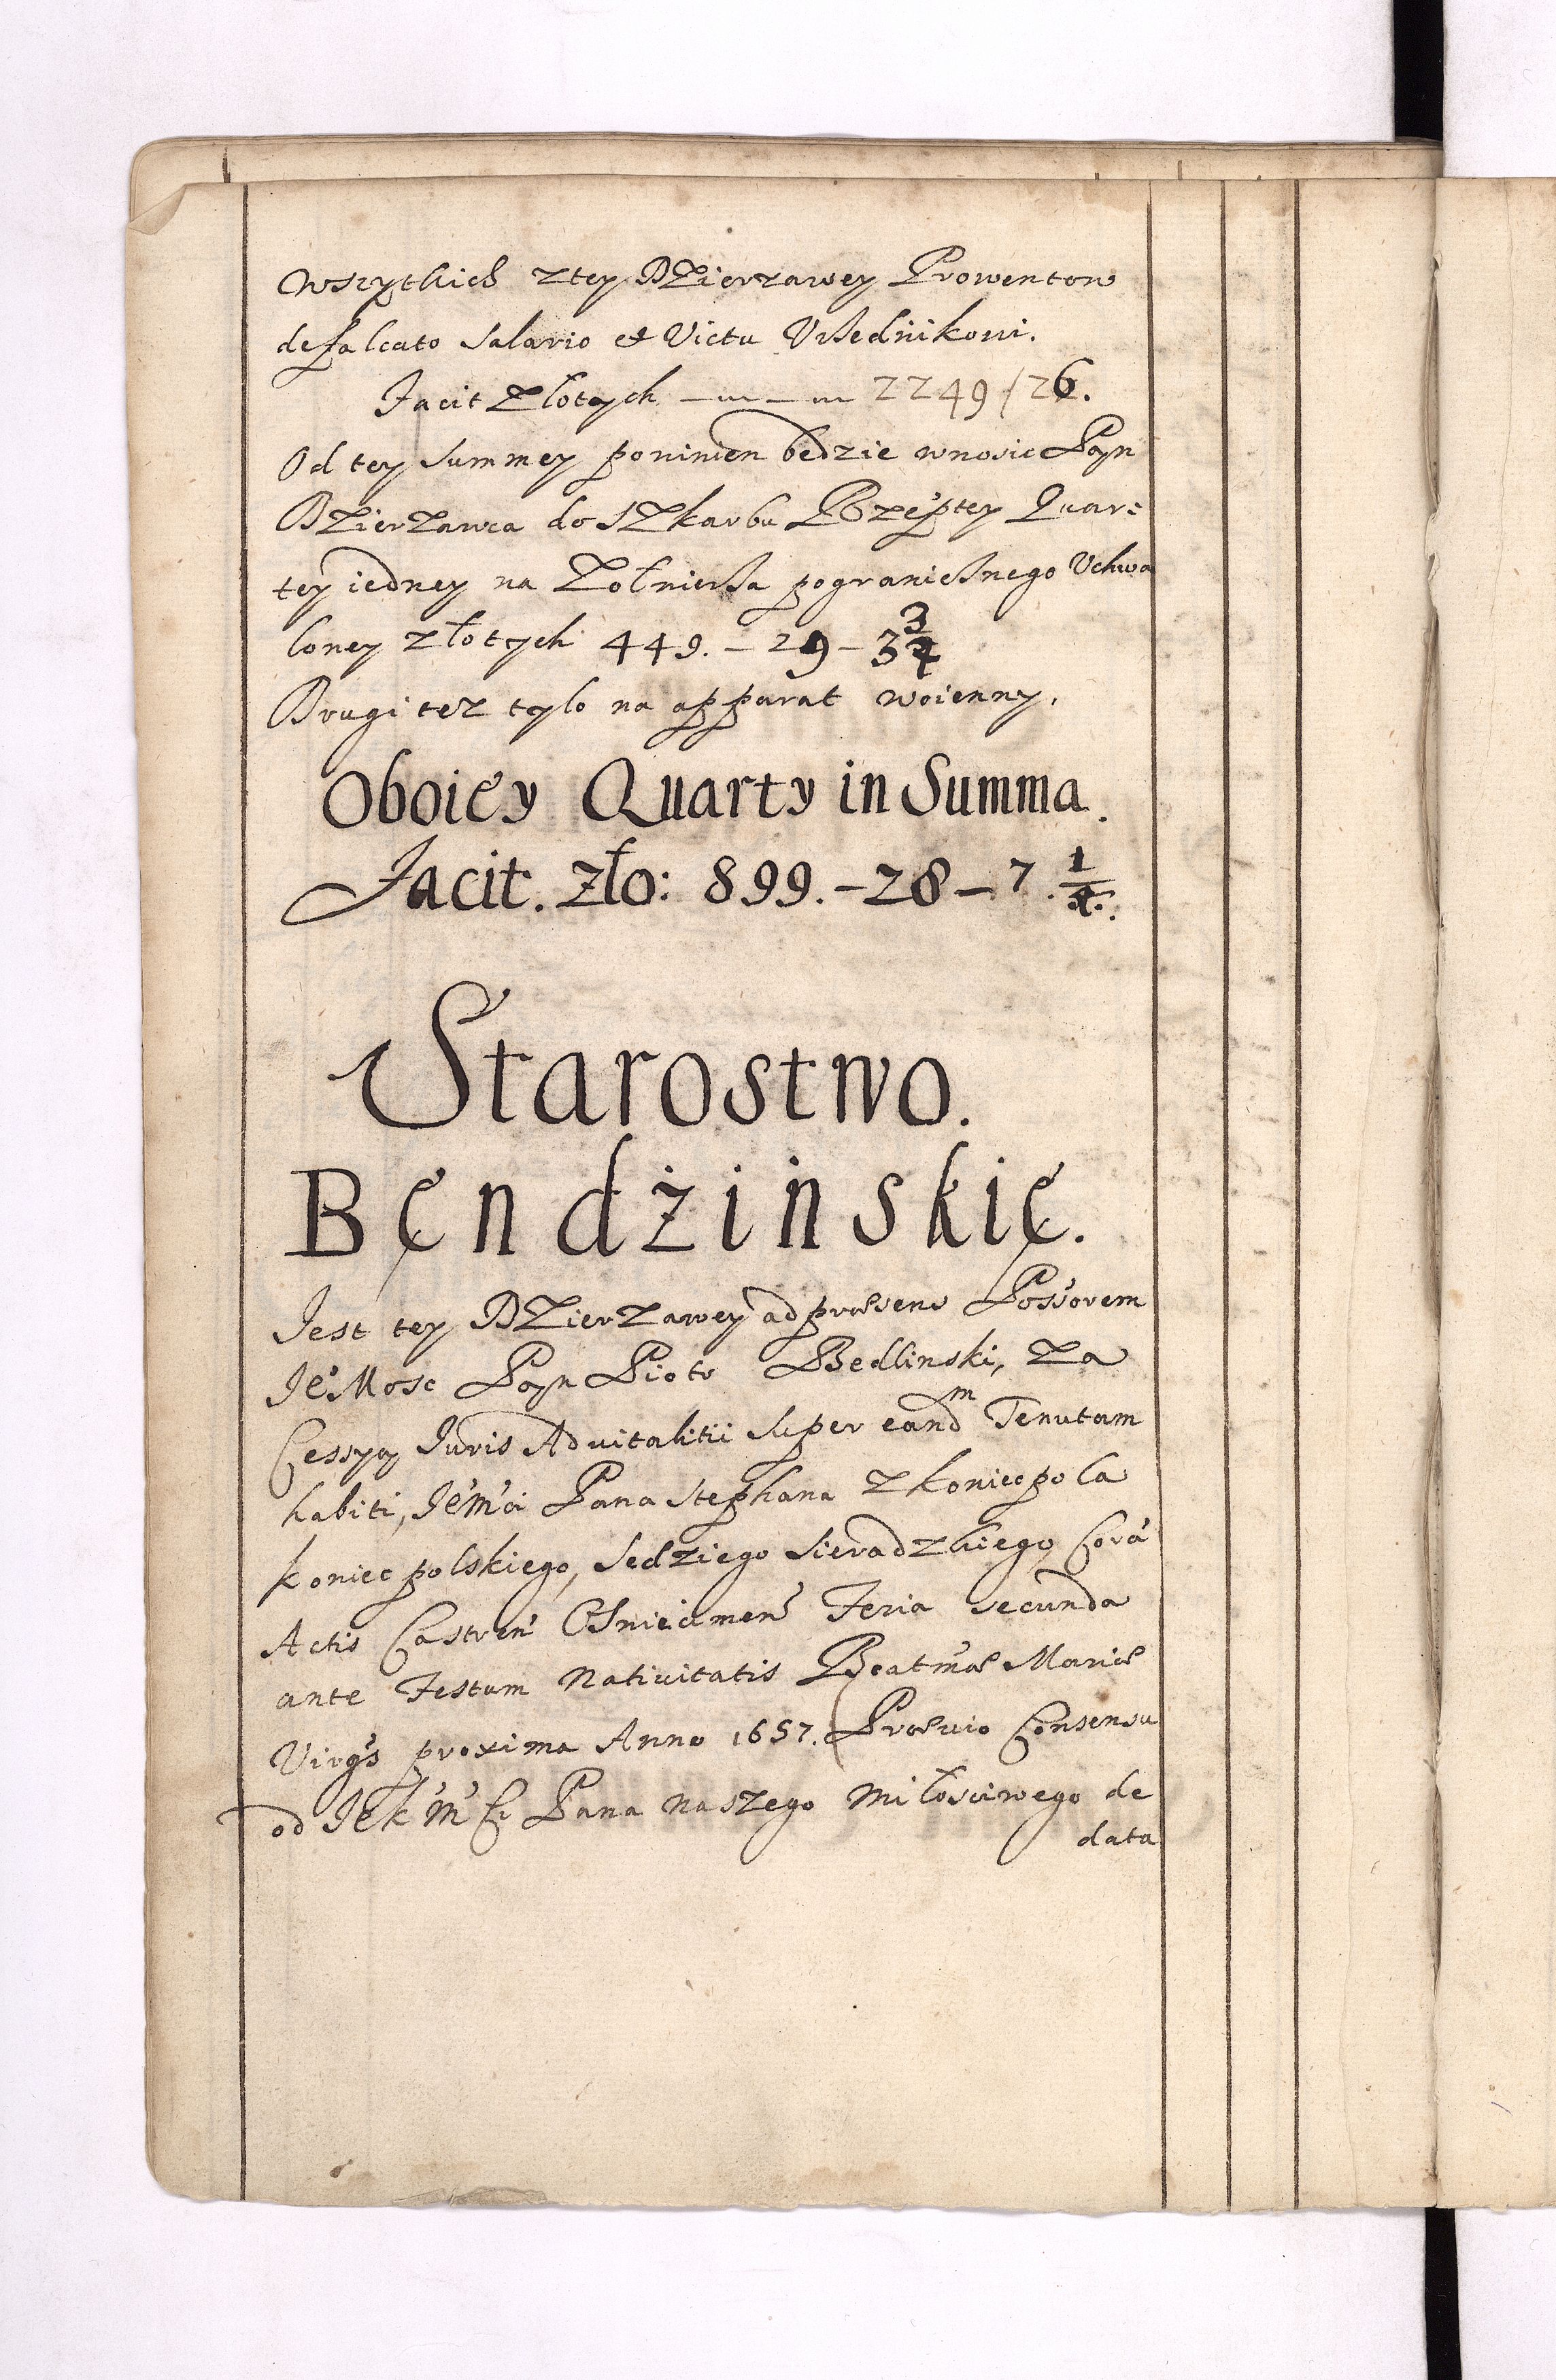 Wszytkich z tey Dzierzawey Prowentow
defalcato Salario et Victu Vrzednikowi.
Facit Złotych ——— 2249/26.
Od tey Summey powinien bedzie wnosic Pan
Dzierzawca do Szkarbu Rzeptey Quar:
tey iedney na Zołnierza pogranicznego Vchwa
loney złotych 449.–29–3 3/4
Drugi tez tylo na apparat woienny.
Oboiey Quarty in Summa.
Facit. zło: 899.–28–7. 1/4.
Starostwo.
Bendzinskie.
Jest tey Dzierzawey ad præsens Possorem
JeMosc Pan Piotr Bedlinski, za
Cessyą Juris Advitalitii super eandm Tenutam
habiti, Jemci Pana Stephana z koniecpola
koniecpolskiego, Sedziego Sieradzkiego Cora
Actis Castren Osniecimen Feria secunda
ante Festum Nativitatis Beatmæ Mariæ
Virgs proxima Anno 1657. Prævio Consensu
od JekmCi Pana naszego Miłosciwego de
data